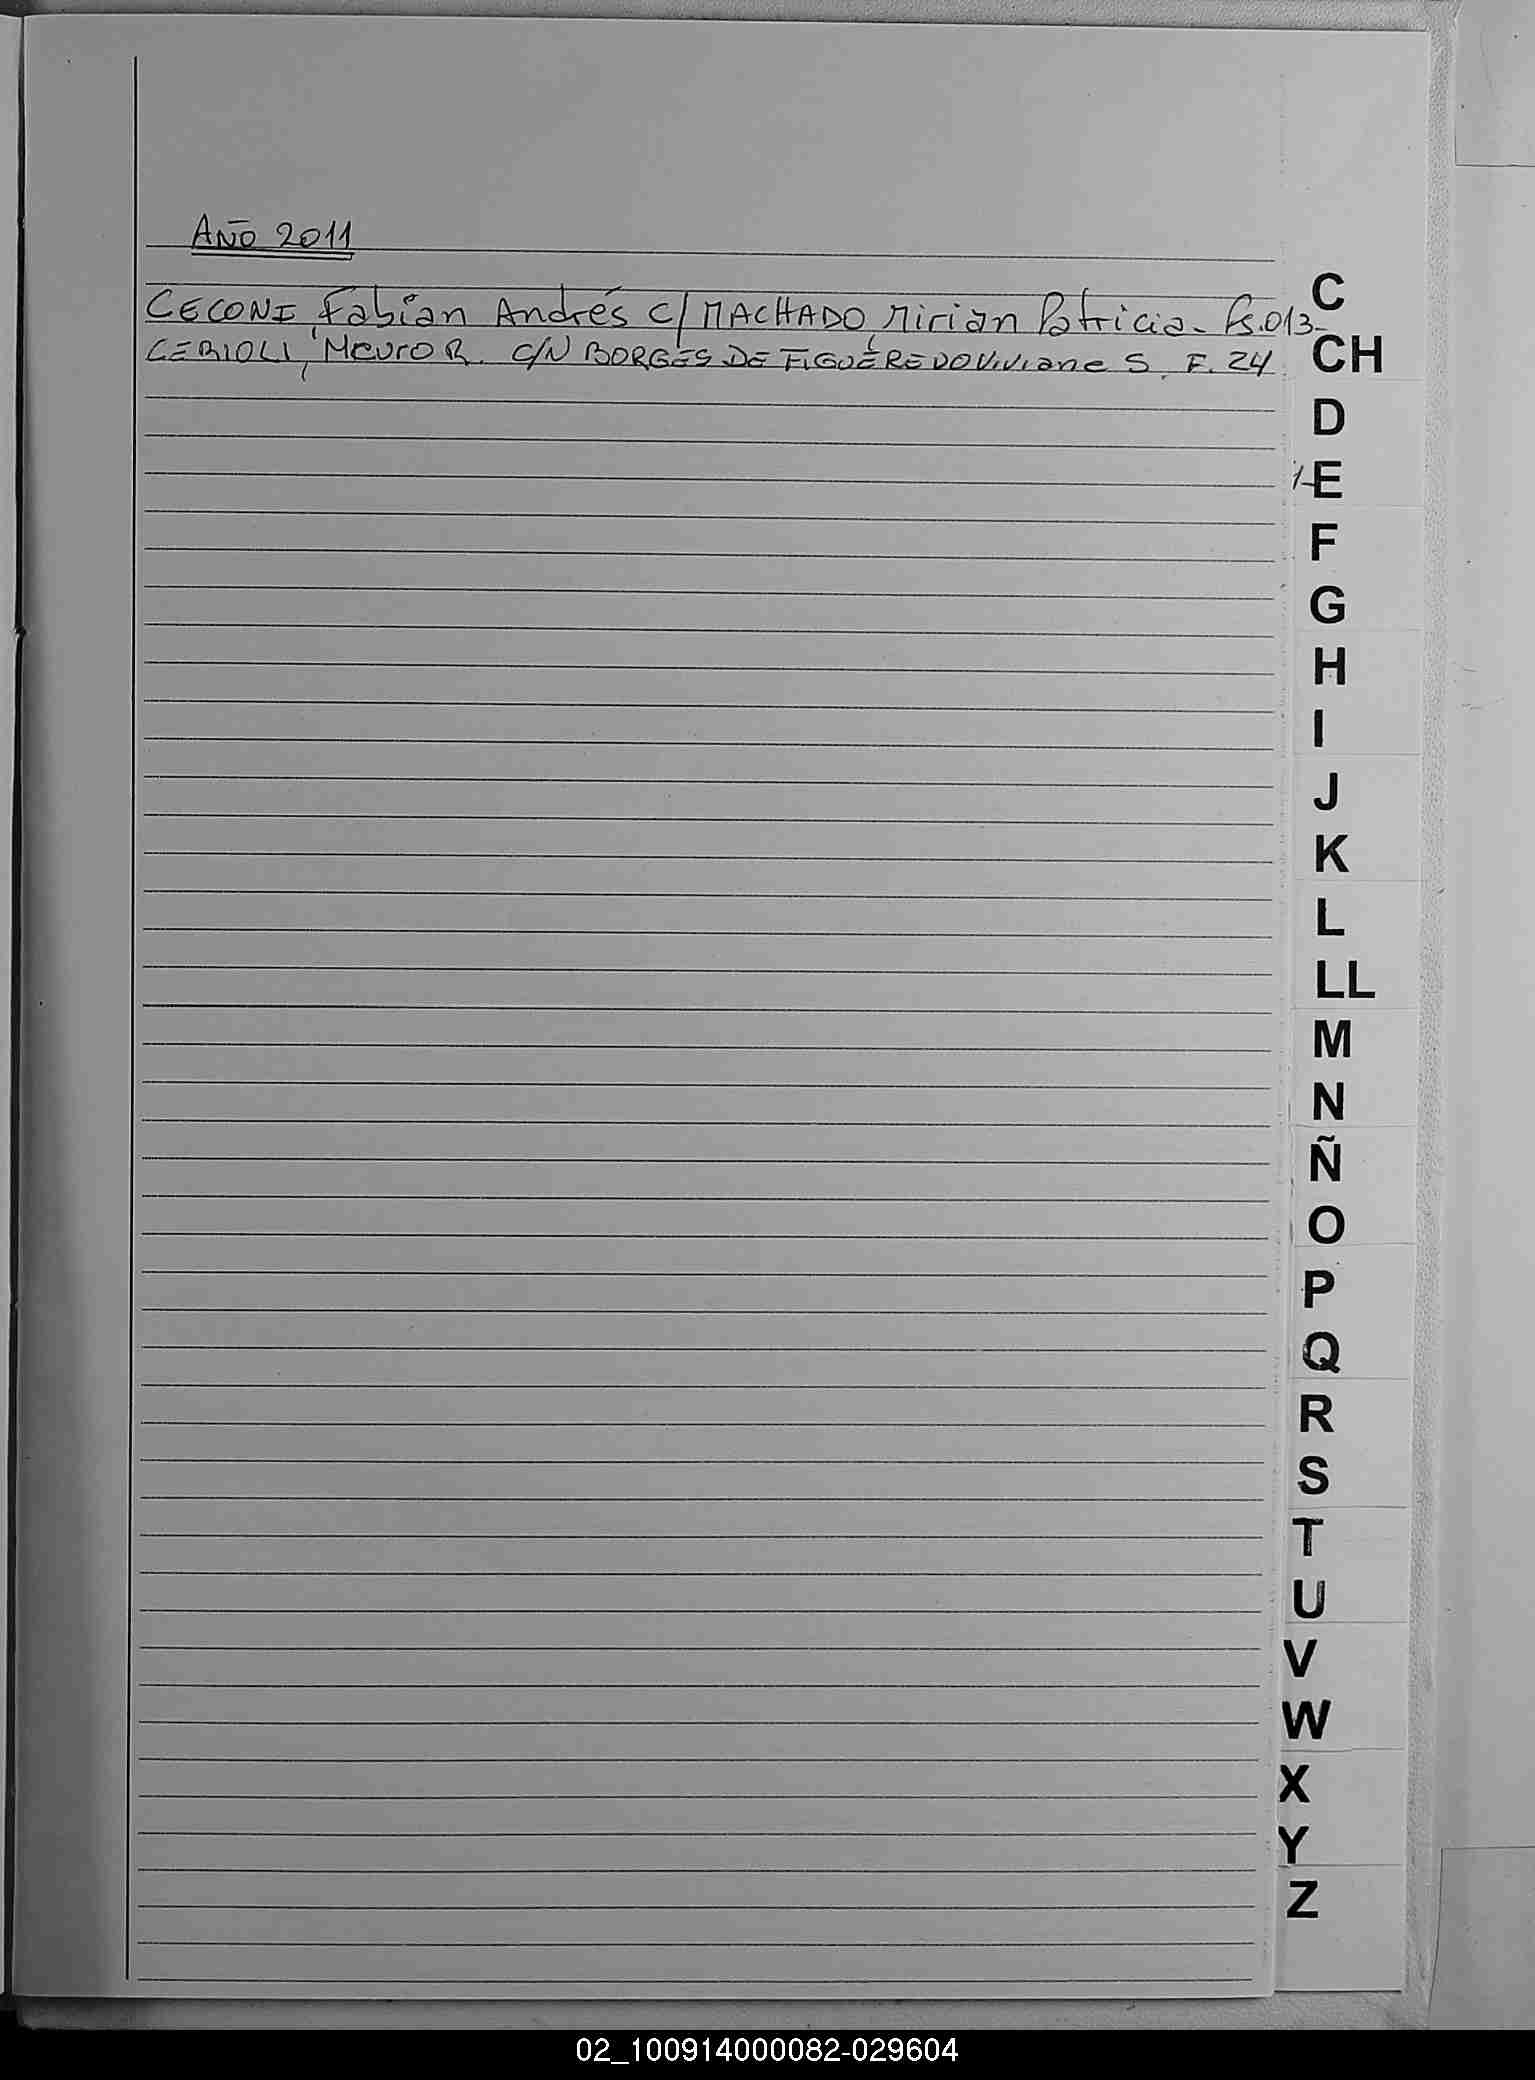 AÑO 2011
CECONI, Fabián Andrés C/ MACHADO, Mirian Patricia- Fs.013-
CERIOLI, R. C/N BORGES DE FIGUEREDO Viviane S. F. 24
C
CH
D
1-E
F
G
H
I
J
K
L
LL
M
N
Ñ
O
P
Q
R
S
T
U
V
W
X
Y
Z
02_100914000082-029604